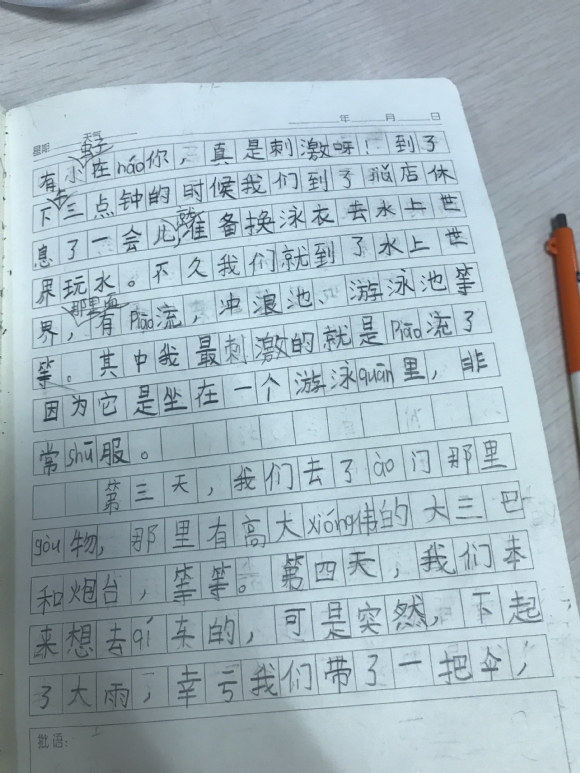 星期 天气 年 月 日
虫子
有小在náo你，真是刺激呀！到了
下三点钟的时候我们到了酒店休
息了一会儿，准备换泳衣去水上世
就
界玩水。不久我们就到了水上世
那里面
界，有Piāo流，冲浪池、游泳池等
等。其中我最刺激的就是Piāo流了
因为它是坐在一个游泳quān里，非
常shū服。
第三天，我们去了ào门那里
gòu物，那里有高大xióng伟的大三巴
和炮台，等等。第四天，我们本
来想去qí车的，可是突然，下起
了大雨，幸亏我们带了一把伞，
批语：